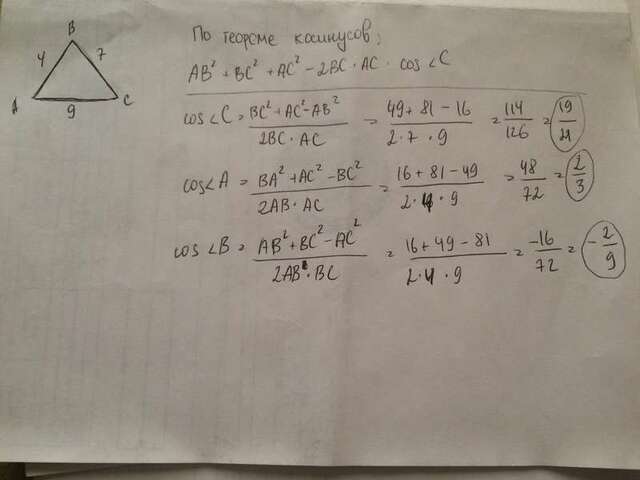 По теореме косинусов:
AB² + BC² + AC² - 2BC · AC · cos<C
cos<C = BC² + AC² - AB² / 2BC · AC = 49 + 81 - 16 / 2 · 7 · 9 = 114 / 126 = 19 / 21
cos<A = BA² + AC² - BC² / 2AB · AC = 16 + 81 - 49 / 2 · 4 · 9 = 48 / 72 = 2 / 3
cos<B = AB² + BC² - AC² / 2AB · BC = 16 + 49 - 81 / 2 · 4 · 9 = -16 / 72 = - 2 / 9
B
4 7
A 9 C